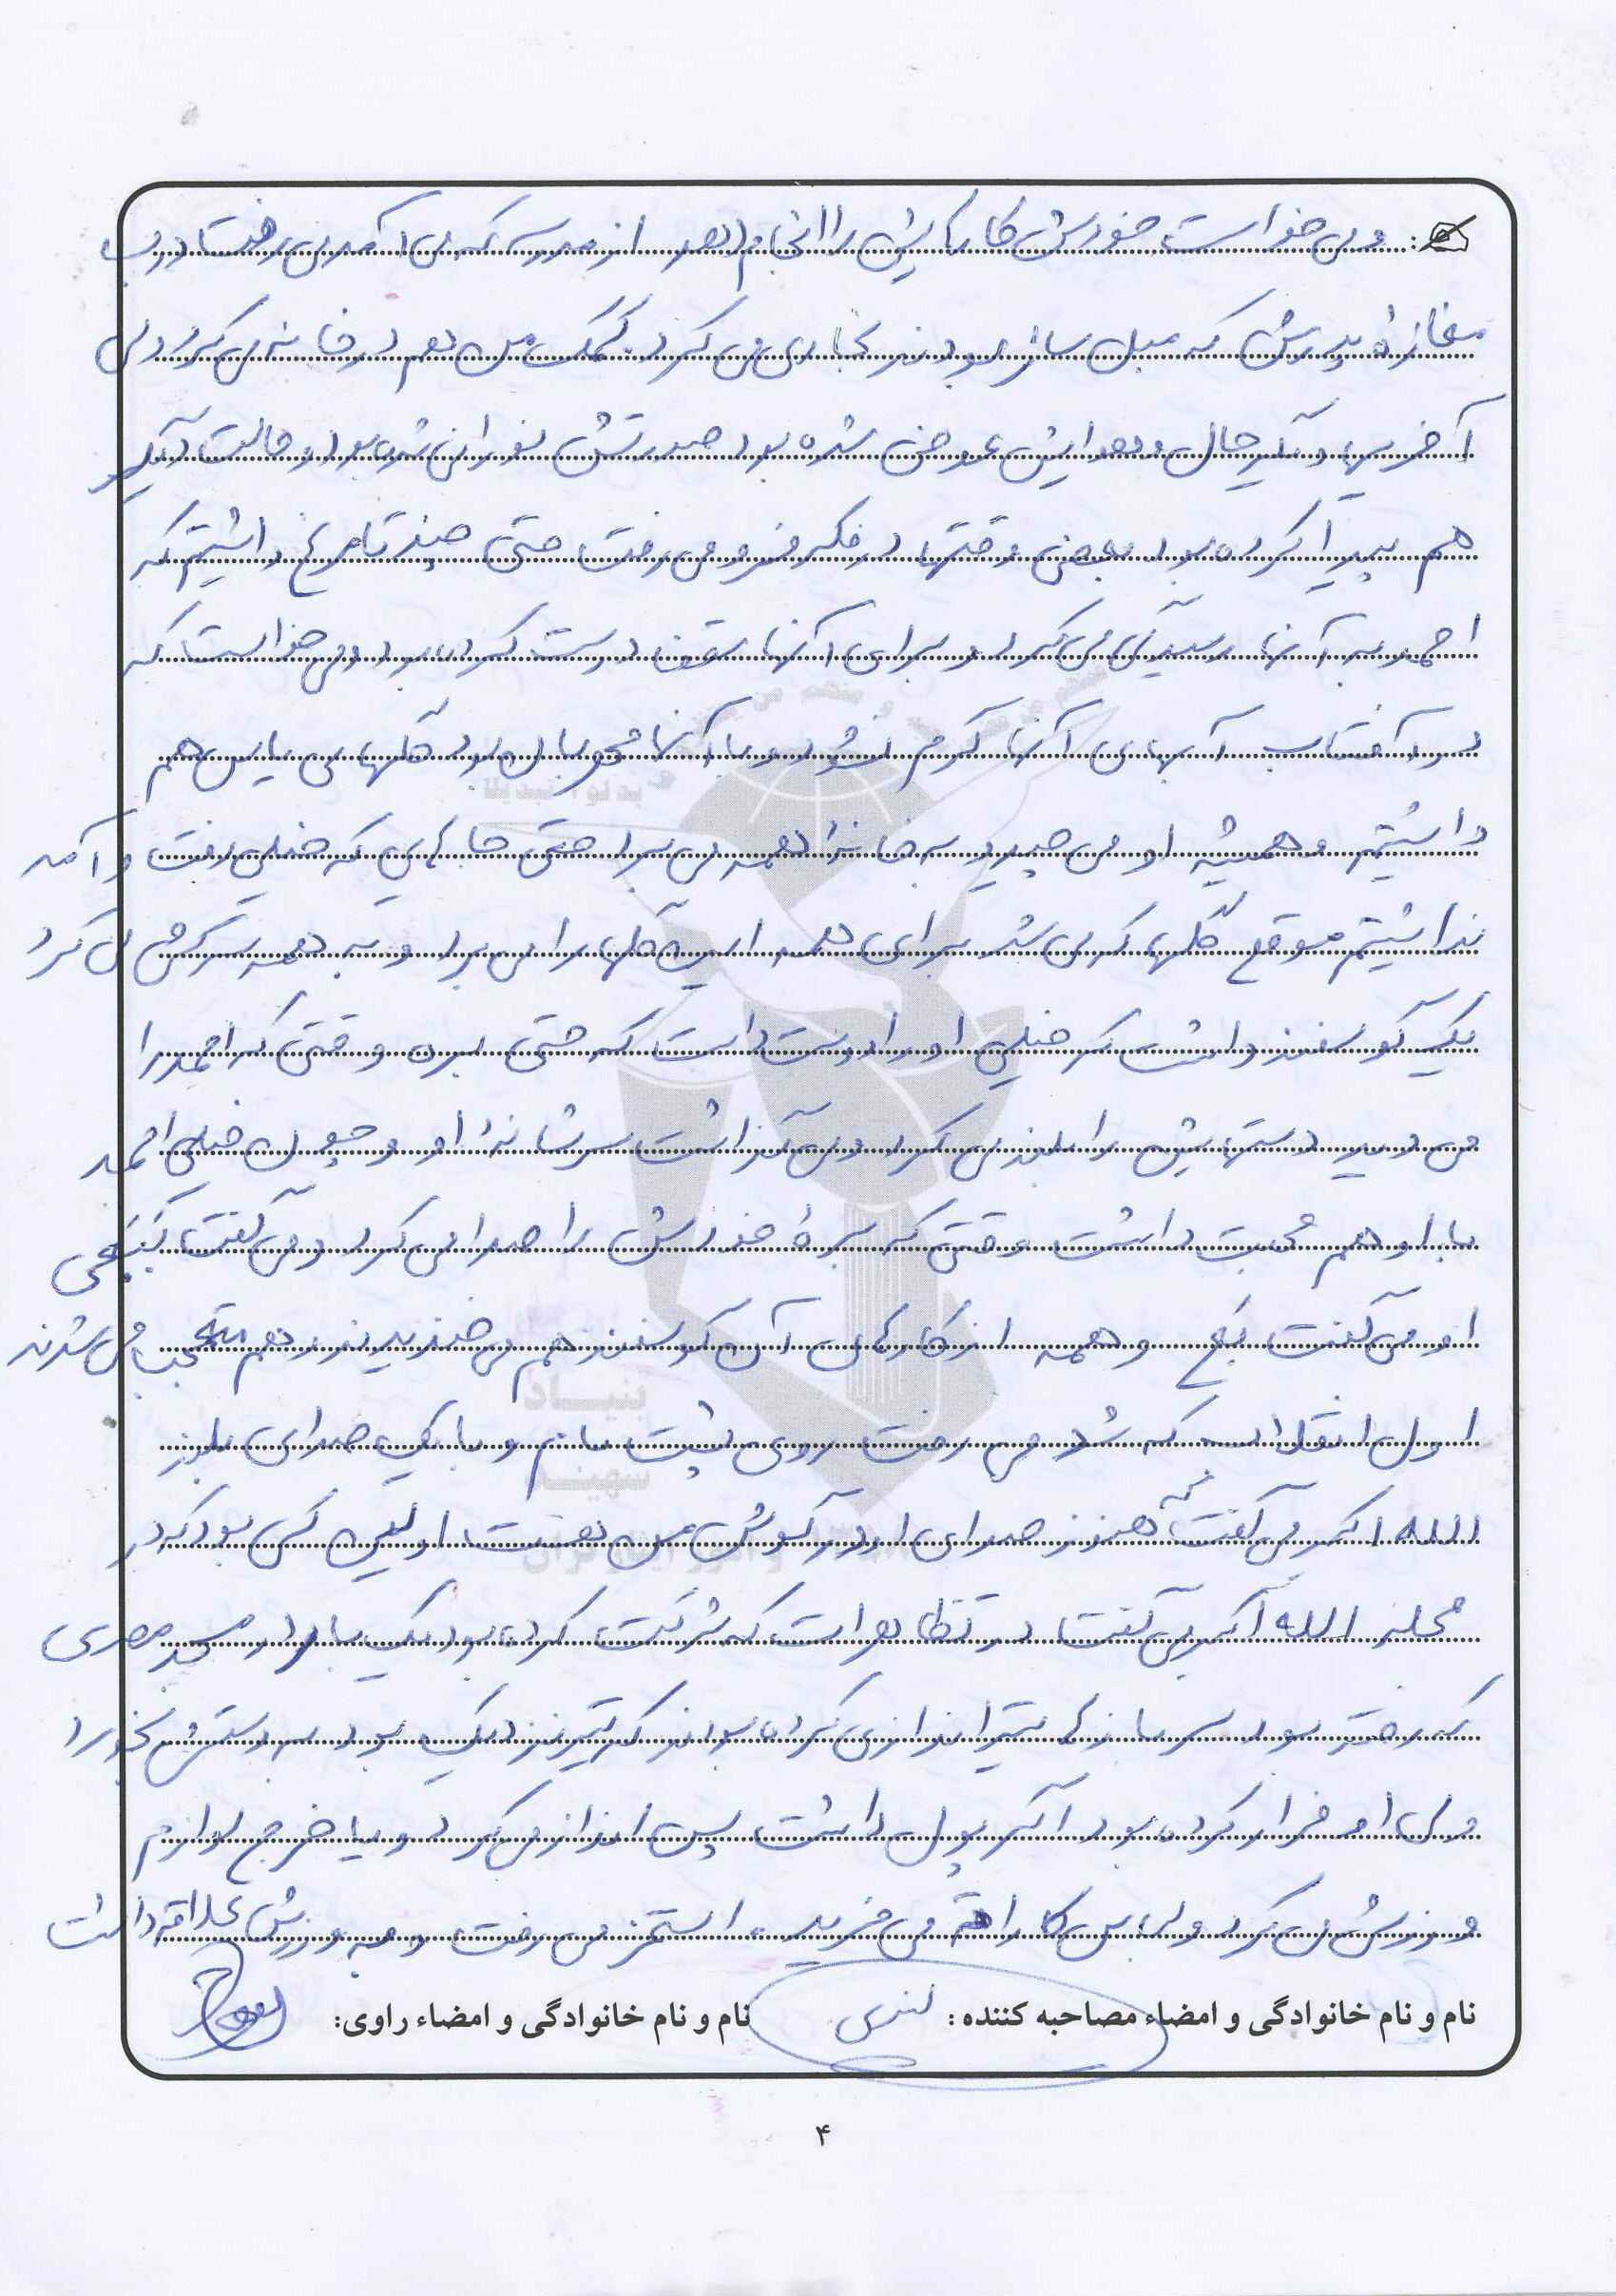 و می خواست خودش کارهایش را انجام دهد از مدرسه که می آمد می رفت درب
مغازۀ پدرش که مبل ساز بودند نجاری می کرد. کمک من هم در خانه می کرد ولی
آخریها دیگر حال و هوایش عوض شده بود صورتش نورانی شده بود و حالت دیگر
هم پیدا کرده بود بعضی وقتها در فکر فرو می رفت حتی چند تا مرغ داشتیم که
احمد به آنها رسیدگی می کرد و برای آنها سقف درست کرده بود و می خواست که
در آفتاب آبهای آنها گرم نشود و با آنها مهربان بود گلهای یاس هم
داشتیم و همیشه او می چید و به خانۀ همه می برد حتی جاهایی که خیلی رفت و آمد
نداشتیم موقع گلها که می شد برای همه این گلها را می برد و به همه سرکشی می کرد
یک گوسفند داشت که خیلی او را دوست داشت که حتی بره وقتی که احمد را
می دید دستهایش را بلند می کرد و می گذاشت سر شانۀ او و چون خیلی احمد
با او هم محبت داشت وقتی که برۀ خودش را صدا می کرد و می گفت ببعی
او می گفت بع و همه از کارهای آن گوسفند هم می خندیدند و هم متعجب می شدند
اول انقلاب که شد می رفت روی پشت بام و با یک صدای بلند
الله اکبر می گفت که هنوز صدای او در گوش من هست اولین کسی بود که در
محله الله اکبر می گفت در تظاهرات که شرکت کرده بود یک بار در مسجد
که رفته بود سربازها تیراندازی کرده بودند که تیر نزدیک بود به دستش بخورد
ولی او فرار کرده بود اگر پول داشت پس انداز می کرد و یا خرج لوازم
ورزش می کرد و لباس کاراته می خرید. استخر می رفت و به ورزش علاقه داشت
نام و نام خانوادگی و امضاء مصاحبه کننده: نام و نام خانوادگی و امضاء راوی:
۴